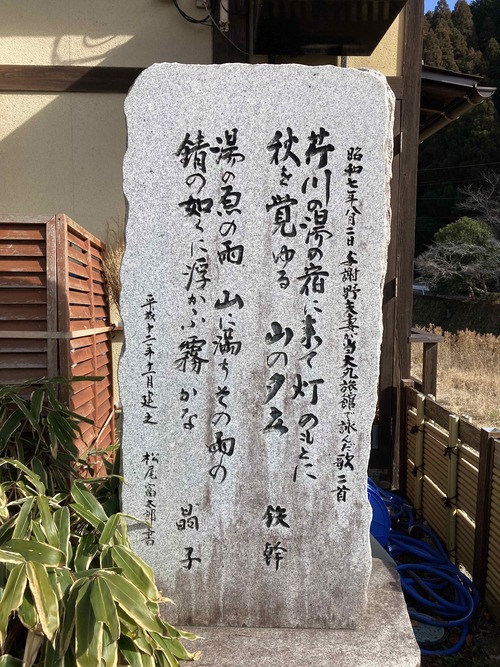 昭和七年八月二日与謝野夫妻が大丸旅館で詠んだ歌二首
芹川の湯の宿に来て灯のもとに
秋を覚ゆる 山の夕立 鉄幹
湯の原の雨 山に満ち その雨の
錆の如くに浮かぶ霧かな 晶子
平成十二年十一月建之 松尾富太郎書